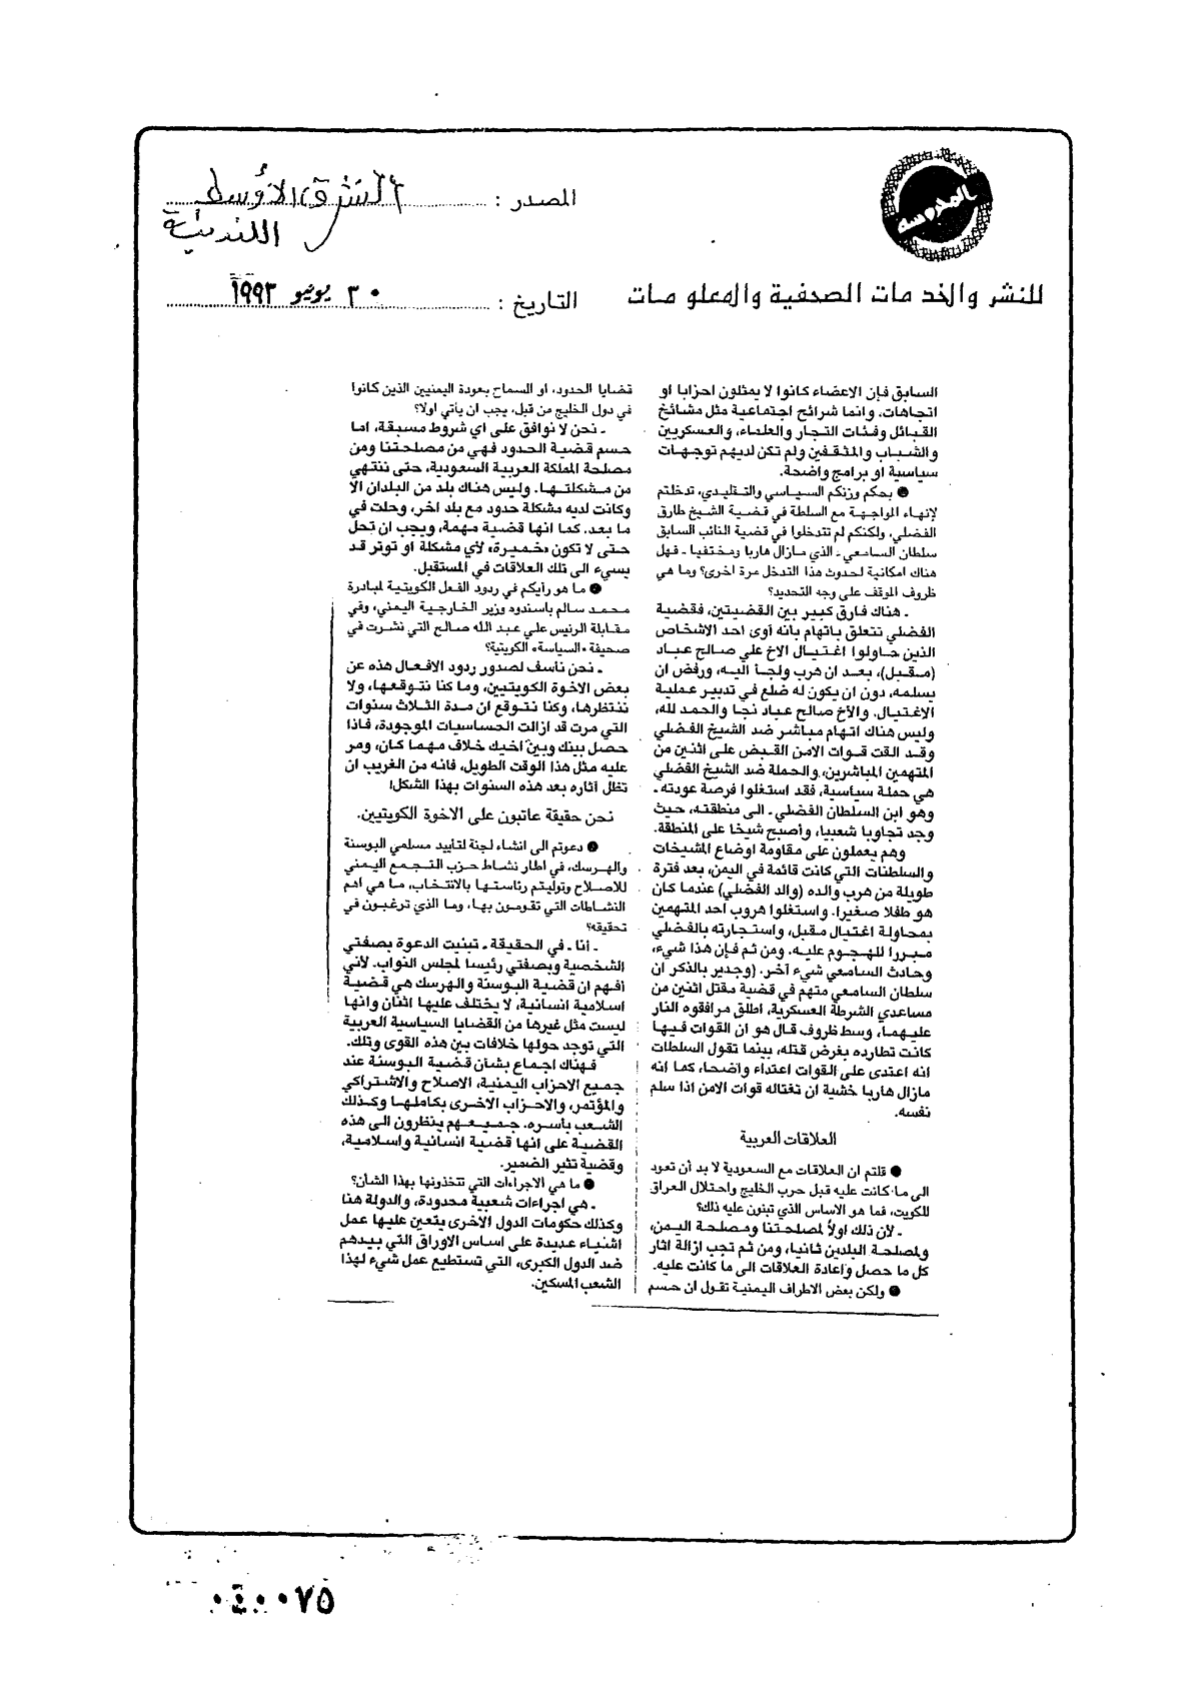 المحروسة
المصدر : الشرق الأوسط
اللندنية
للنشر والخدمات الصحفية والمعلومات
التاريخ : ٣٠ يونيو ١٩٩٣
السابق فإن الاعضاء كانوا لا يمثلون احزابا او
اتجاهات، وانما شرائح اجتماعية مثل مشائخ
القبائل وفئات التجار والعلماء، والعسكريين
والشباب والمثقفين ولم تكن لديهم توجهات
سياسية او برامج واضحة.
● بحكم وزنكم السياسي والتقليدي، تدخلتم
لإنهاء المواجهة مع السلطة في قضية الشيخ طارق
الفضلي، ولكنكم لم تتدخلوا في قضية النائب السابق
سلطان السامعي ـ الذي مازال هاربا ومختفيا ـ فهل
هناك امكانية لحدوث هذا التدخل مرة اخرى؟ وما هي
ظروف الموقف على وجه التحديد؟
ـ هناك فارق كبير بين القضيتين، فقضية
الفضلي تتعلق باتهام بأنه آوى احد الاشخاص
الذين حاولوا اغتيال الاخ علي صالح عباد
(مقبل)، بعد ان هرب ولجأ اليه، ورفض ان
يسلمه، دون ان يكون له ضلع في تدبير عملية
الاغتيال. والأخ صالح عباد نجا والحمد لله،
وليس هناك اتهام مباشر ضد الشيخ الفضلي
وقد القت قوات الامن القبض على اثنين من
المتهمين المباشرين، والحملة ضد الشيخ الفضلي
هي حملة سياسية، فقد استغلوا فرصة عودته ـ
وهو ابن السلطان الفضلي ـ الى منطقته، حيث
وجد تجاوبا شعبيا، وأصبح شيخا على المنطقة.
وهم يعملون على مقاومة اوضاع المشيخات
والسلطنات التي كانت قائمة في اليمن، بعد فترة
طويلة من هرب والده (والد الفضلي) عندما كان
هو طفلا صغيرا. واستغلوا هروب احد المتهمين
بمحاولة اغتيال مقبل، واستجارته بالفضلي
مبررا للهجوم عليه. ومن ثم فإن هذا شيء،
وحادث السامعي شيء آخر. (وجدير بالذكر ان
سلطان السامعي متهم في قضية مقتل اثنين من
مساعدي الشرطة العسكرية، اطلق مرافقوه النار
عليهما، وسط ظروف قال هو ان القوات فيها
كانت تطارده بغرض قتله، بينما تقول السلطات
انه اعتدى على القوات اعتداء واضحا، كما انه
مازال هاربا خشية ان تغتاله قوات الامن اذا سلم
نفسه.
العلاقات العربية
● قلتم ان العلاقات مع السعودية لا بد أن تعود
الى ما كانت عليه قبل حرب الخليج واحتلال العراق
للكويت، فما هو الاساس الذي تبنون عليه ذلك؟
ـ لأن ذلك اولاً لمصلحتنا ومصلحة اليمن،
ولمصلحة البلدين ثانيا، ومن ثم تجب ازالة اثار
كل ما حصل واعادة العلاقات الى ما كانت عليه.
● ولكن بعض الاطراف اليمنية تقول ان حسم
قضايا الحدود، او السماح بعودة اليمنيين الذين كانوا
في دول الخليج من قبل، يجب ان يأتي اولا؟
ـ نحن لا نوافق على اي شروط مسبقة، اما
حسم قضية الحدود فهي من مصلحتنا ومن
مصلحة المملكة العربية السعودية، حتى ننتهي
من مشكلتها. وليس هناك بلد من البلدان الا
وكانت لديه مشكلة حدود مع بلد اخر، وحلت في
ما بعد. كما انها قضية مهمة، ويجب ان تحل
حتى لا تكون «خميرة» لأي مشكلة او توتر قد
يسيء الى تلك العلاقات في المستقبل.
● ما هو رأيكم في ردود الفعل الكويتية لمبادرة
محمد سالم باسندوه وزير الخارجية اليمني، وفي
مقابلة الرئيس علي عبد الله صالح التي نشرت في
صحيفة «السياسة» الكويتية؟
ـ نحن نأسف لصدور ردود الافعال هذه عن
بعض الاخوة الكويتيين، وما كنا نتوقعها، ولا
ننتظرها، وكنا نتوقع ان مدة الثلاث سنوات
التي مرت قد ازالت الحساسيات الموجودة، فاذا
حصل بينك وبين اخيك خلاف مهما كان، ومر
عليه مثل هذا الوقت الطويل، فانه من الغريب ان
تظل آثاره بعد هذه السنوات بهذا الشكل!
نحن حقيقة عاتبون على الاخوة الكويتيين.
● دعوتم الى انشاء لجنة لتأييد مسلمي البوسنة
والهرسك، في اطار نشاط حزب التجمع اليمني
للاصلاح وتوليتم رئاستها بالانتخاب، ما هي اهم
النشاطات التي تقومون بها، وما الذي ترغبون في
تحقيقه؟
ـ أنا ـ في الحقيقة ـ تبنيت الدعوة بصفتي
الشخصية وبصفتي رئيسا لمجلس النواب. لأني
أفهم ان قضية البوسنة والهرسك هي قضية
اسلامية انسانية، لا يختلف عليها اثنان وانها
ليست مثل غيرها من القضايا السياسية العربية
التي توجد حولها خلافات بين هذه القوى وتلك.
فهناك اجماع بشأن قضية البوسنة عند
جميع الاحزاب اليمنية، الاصلاح والاشتراكي
والمؤتمر، والاحزاب الاخرى بكاملها وكذلك
الشعب بأسره. جميعهم ينظرون الى هذه
القضية على انها قضية انسانية واسلامية،
وقضية تثير الضمير.
● ما هي الاجراءات التي تتخذونها بهذا الشأن؟
ـ هي اجراءات شعبية محدودة، والدولة هنا
وكذلك حكومات الدول الاخرى يتعين عليها عمل
اشياء عديدة على اساس الاوراق التي بيدهم
ضد الدول الكبرى، التي تستطيع عمل شيء لهذا
الشعب المسكين.
٠٤٠٠٧٥